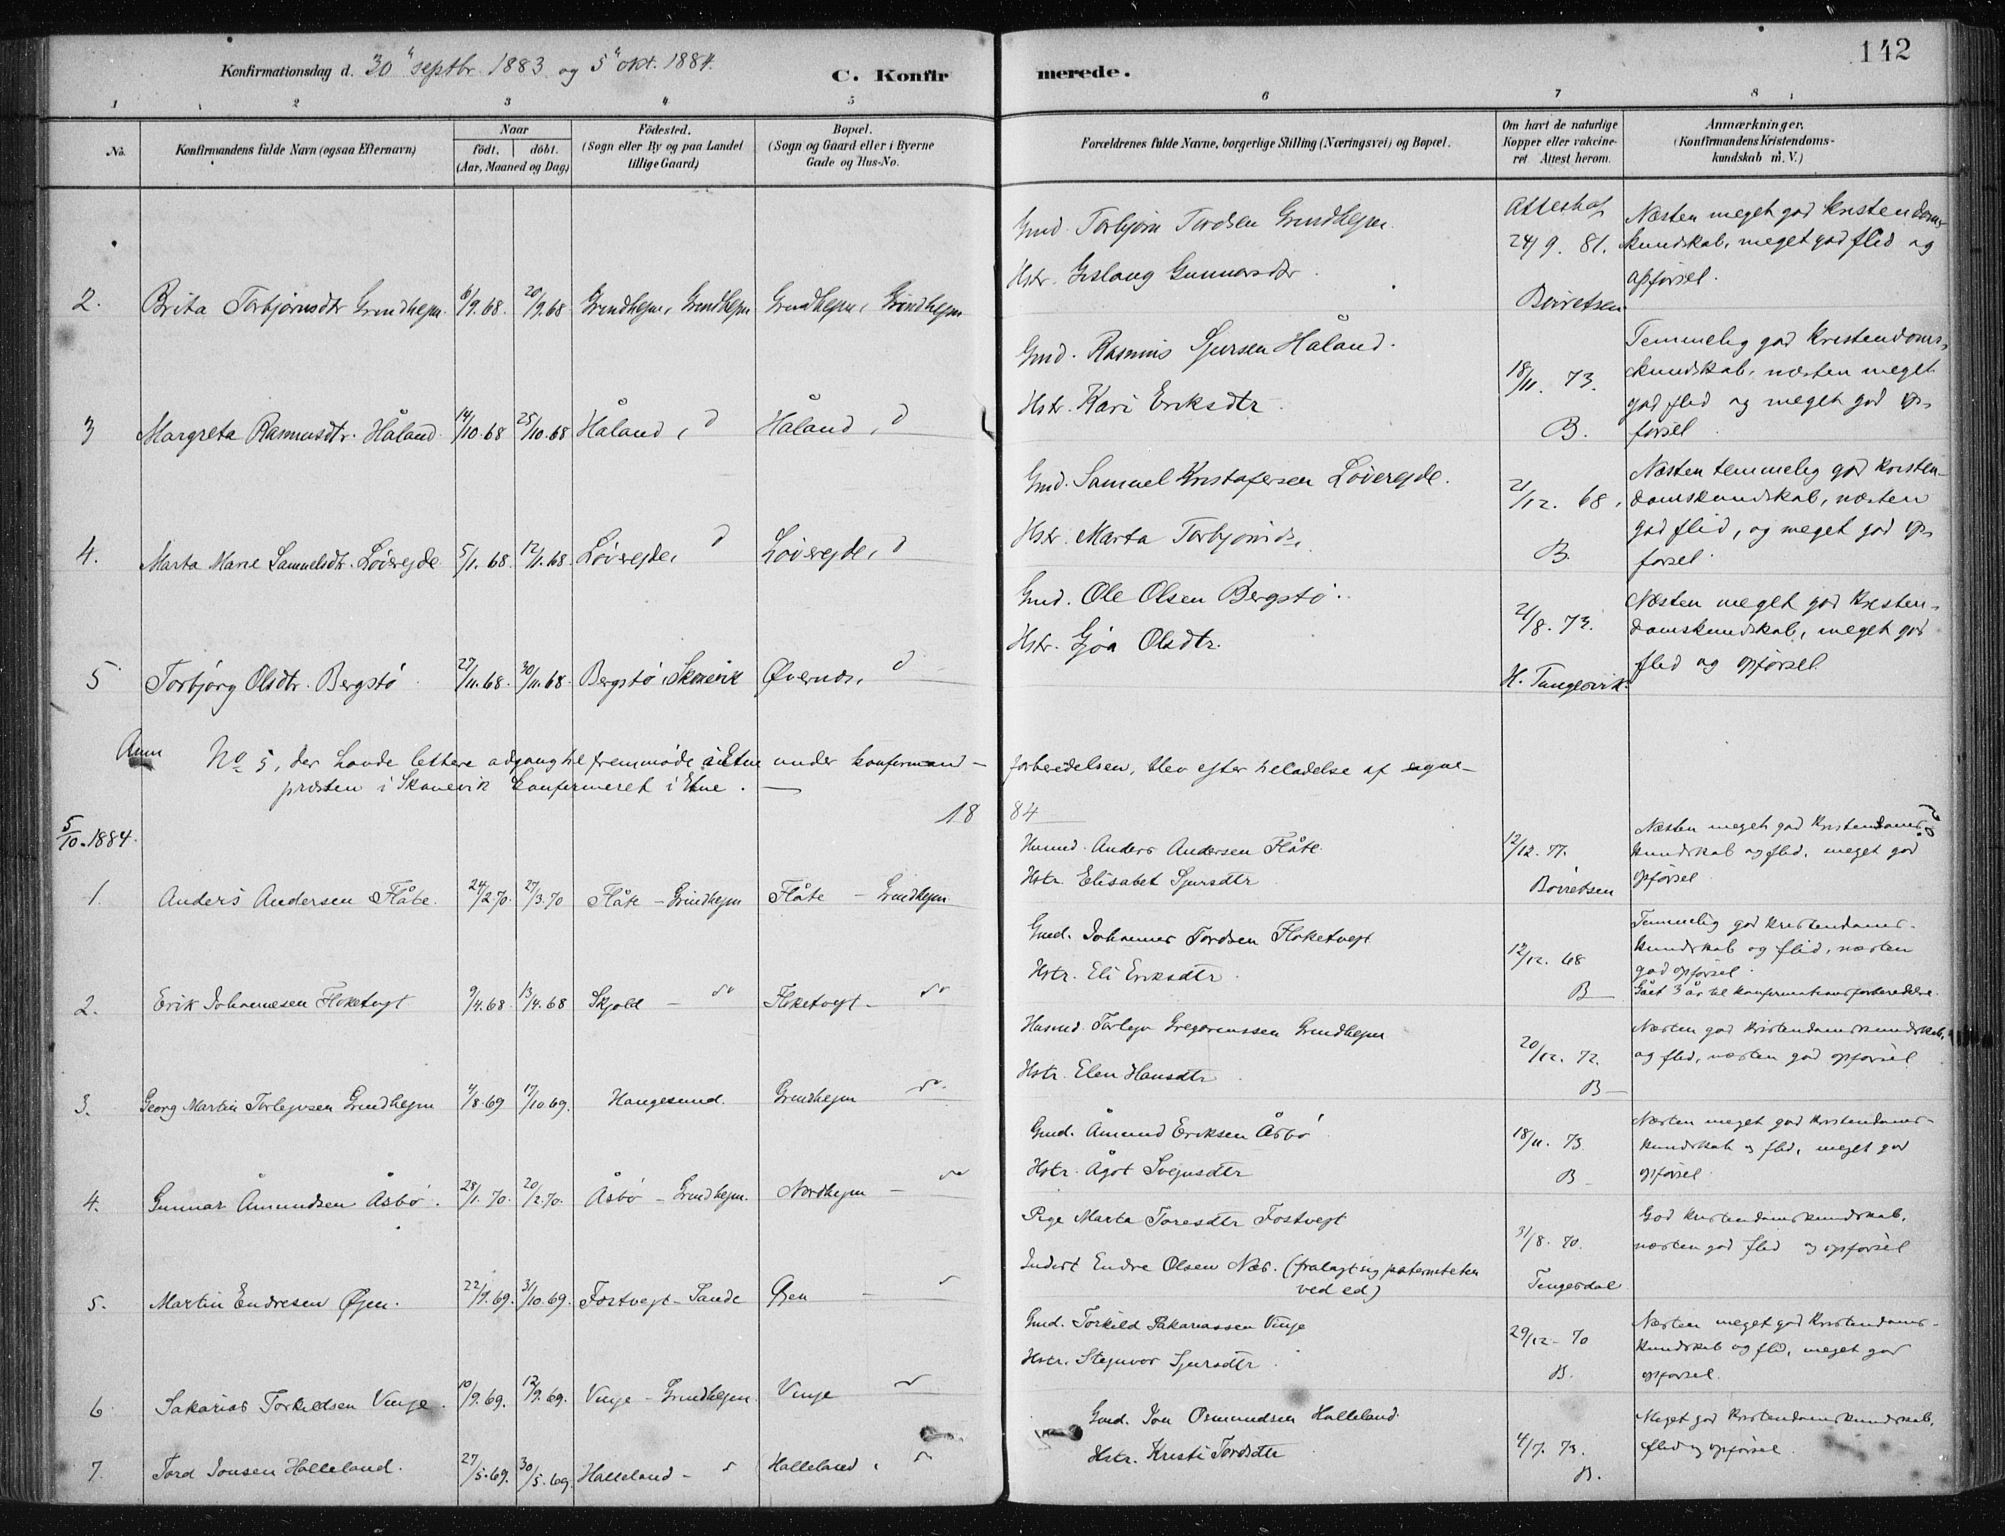 142
Konfirmationsdag d. 30" septbr. 1883 og 5" okt. 1884.
C. Konfirmerede.
1 2 3 4 5 6 7 8
No.
Konfirmandens fulde Navn (ogsaa Efternavn)
Naar
födt. döbt.
(Aar, Maaned og Dag)
Födested.
(Sogn eller By og paa Landet
tillige Gaard)
Bopæl.
(Sogn og Gaard eller i Byerne
Gade og Hus-No.
Forældrenes fulde Navne, borgerlige Stilling (Næringsvei) og Bopæl.
Om havt de naturlige
Kopper eller vakcine-
ret Attest herom.
Anmærkninger.
(Konfirmandens Kristendoms-
kundskab m. V.)
2. Brita Torbjørnsdtr Grindhejm. 6/9.68. 20/9.68 Grindhejm, Grindhejm Grindhejm, Grindhejm
Gmd. Torbjørn Tordsen Grindhejm.
Hstr. Gunnarsdtr.
Attest af
24/9. 81.
Børretsen
Næsten meget god Kristendoms-
kundskab, meget god flid og
opførsel.
3 Margreta Rasmusdtr. Håland 14/10.68 25/10.68 Håland, d Håland, d
Gmd. Rasmus Sjursen Håland.
Hstr. Kari Eriksdtr.
18/11. 73.
B.
Temmelig god Kristendoms-
kundskab, næsten meget
god flid og meget god op-
førsel.
4. Marta Marie Samuelsdtr. Løverejde 5/1.68. 12/1.68. Løverejde, d Løverejde, d
Gmd. Samuel Kristofersen Løverejde.
Hstr. Marta Torbjørnsd.
21/12. 68.
B.
Næsten temmelig god Kristen-
domskundskab, næsten
god flid, og meget god op-
førsel.
5 Torbjørg Olsdtr. Bergstø 27/11.68. 30/11.68. Bergstø, Skånevik Øvernæs, d
Gmd. Ole Olsen Bergstø.
Hstr. Gjøa Olsdtr.
21/8. 73.
H. Tungesvik.
Næsten meget god Kristen-
domskundskab, meget god
flid og opførsel
Anm No 5, der havde lettere adgang til fremmøde i Etne under konfirmand-
forberedelsen, blev efter tilladelse af sogne-
præsten i Skånevik konfirmeret i Etne.
1884
5/10.1884.
1. Anders Andersen Flåte. 24/2.70. 27/3.70 Flåte - Grindhejm Flåte - Grindhejm
Husmd. Anders Andersen Flåte.
Hstr. Elisabet Sjursdtr
12/12. 77.
Børretsen
Næsten meget god Kristendoms-
kundskab og flid, meget god
opførsel
2. Erik Johannesen Floketvejt 9/4.68 13/4.68 Skjold - do Floketvejt - do
Gmd. Johannes Tordsen Floketvejt
Hstr. Eli Eriksdtr.
12/12. 68
B
Temmelig god Kristendoms-
kundskab og flid, næsten
god opførsel.
Gået 3 år til konfirmationsforberedelse.
3. Georg Martin Torlejvsen Grindhejm 4/8.69 17/10.69. Haugesund. Grindhejm do
Husmd Torlejv Gregoriussen Grindhejm
Hstr. Elen Hansdtr.
20/12. 72.
B
Næsten god Kristendomskundskab,
og flid, næsten god opførsel
4. Gunnar Åmundsen Åsbø. 28/1.70. 20/2.70. Åsbø - Grindhejm. Nordhejm - do
Gmd. Åmund Eriksen Åsbø
Hstr. Ågot Svejnsdtr
18/11. 73
B
Næsten meget god Kristendoms-
kundskab og flid, meget god
opførsel.
5. Martin Endresen Øjen. 22/9.69. 31/10.69. Fostvejt - Sande Øjen -
Pige Marta Toresdtr Fostvejt
Inderst Endre Olsen Næs. (fralagt sig paterniteten
ved ed)
31/8. 70.
Tungesdal
God Kristendomskundskab,
næsten god flid og opførsel
6 Sakarias Torkildsen Vinje. 10/9.69. 12/9.69. Vinje - Grindhejm. Vinje
Gmd. Torkild Sakariassen Vinje
Hstr. Stejnvor Sjursdtr.
29/12- 70
B.
Næsten meget god Kristendoms-
kundskab og flid, meget god
opførsel.
7. Tord Jonsen Halleland. 27/5.69. 30/5.69. Halleland - Halleland,
Gmd. Jon Osmundsen Halleland.
Hstr. Kristi Tordsdtr
4/7. 73.
B.
Meget god Kristendomskundskab,
flid og opførsel.